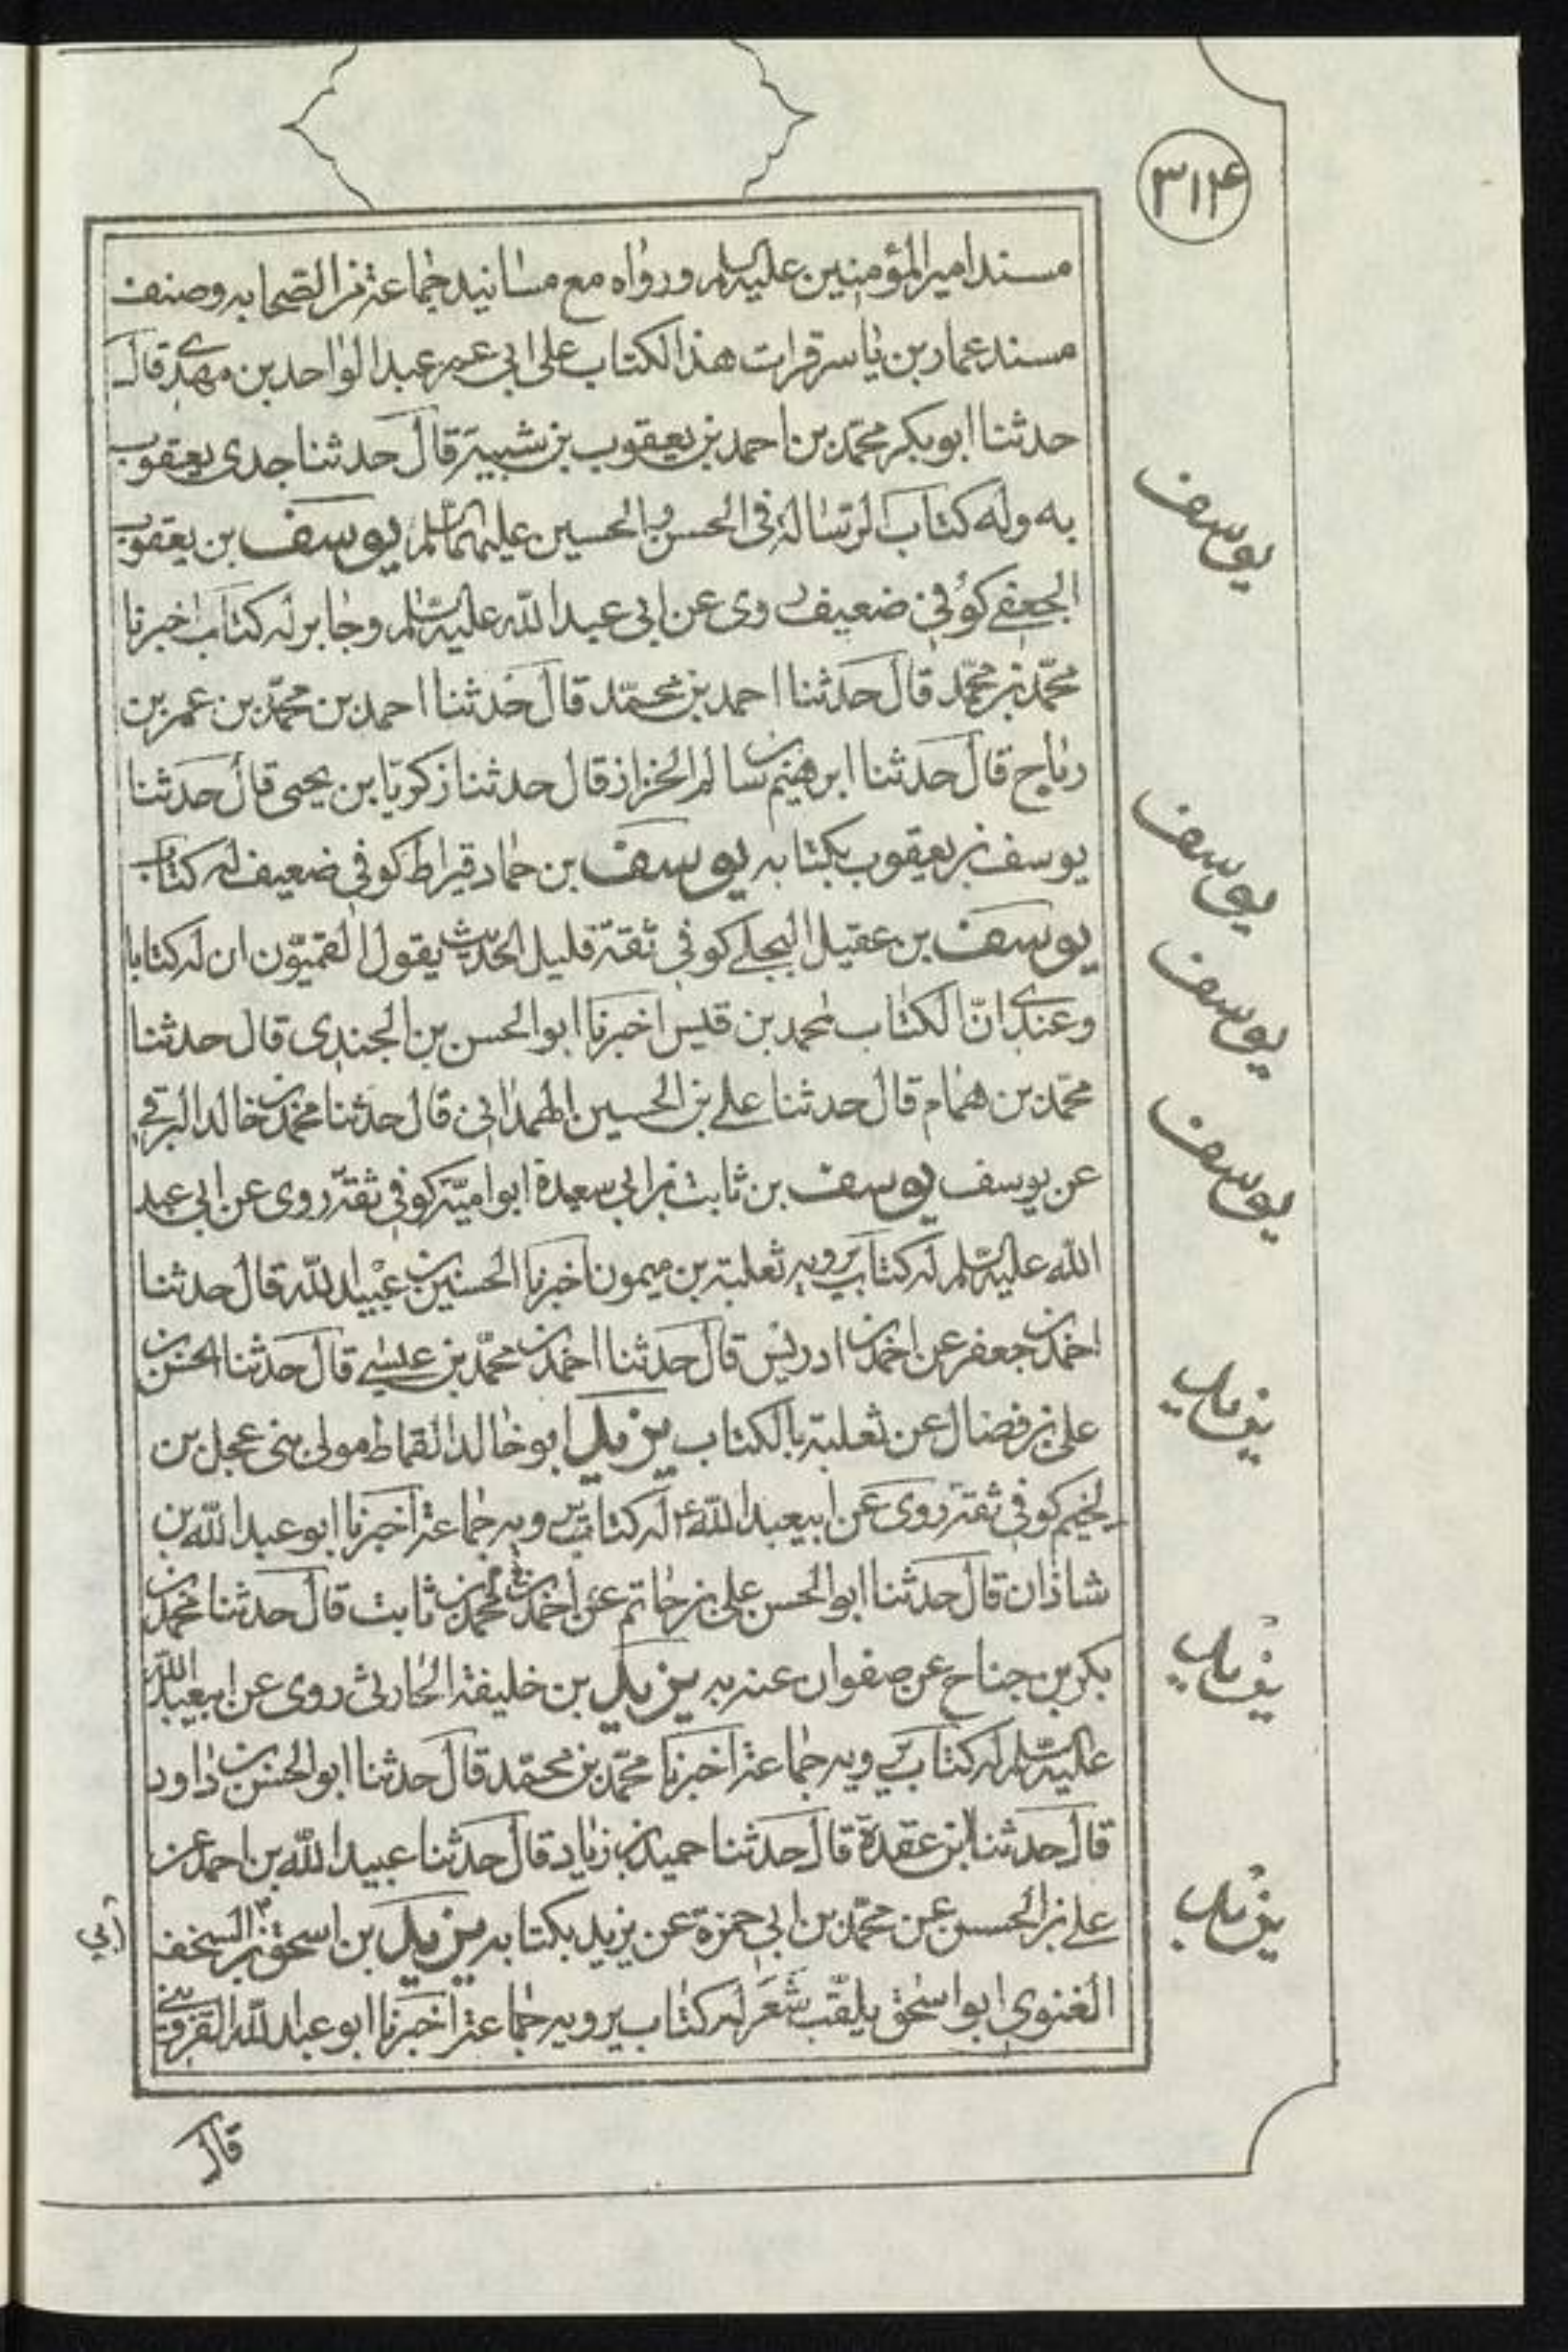 ٣١۴
مسند امیر المؤمنین علیه السلم ورواه مع مسانید جماعة من الصحابه وصنف
مسند عمار بن یاسر قرات هذا الکتاب علی ابی عمر عبد الواحد بن مهدی قال
حدثنا ابو بکر محمّد بن احمد بن یعقوب بن شیبة قال حدثنا جدی یعقوب
به وله کتاب الرسالة فی الحسن والحسین علیهما السّلم یوسف بن یعقوب
الجعفی کوفی ضعیف روی عن ابی عبد الله علیه السّلم وجابر له کتاب اخبرنا
محمّد بن محمّد قال حدثنا احمد بن محمّد قال حدثنا احمد بن محمّد بن عمر بن
رباح قال حدثنا ابرهیم بن سالم الخزاز قال حدثنا زکریّا بن یحیی قال حدثنا
یوسف بن یعقوب بکتابه یوسف بن حماد قیراط کوفی ضعیف له کتاب
یوسف بن عقیل البجلی کوفی ثقة قلیل الحدیث یقول القمیّون ان له کتابا
وعندی انّ الکتاب لمحمد بن قیس اخبرنا ابو الحسن بن الجندی قال حدثنا
محمّد بن همام قال حدثنا علی بن الحسین الهمدانی قال حدثنا محمد بن خالد البرقی
عن یوسف یوسف بن ثابت بن ابی سعیدة ابو امیّة کوفی ثقة روی عن ابی عبد
الله علیه السّلم له کتاب یرویه ثعلبة بن میمون اخبرنا الحسین بن عبید الله قال حدثنا
احمد بن جعفر عن احمد بن ادریس قال حدثنا احمد بن محمّد بن عیسی قال حدثنا الحسن بن
علی بن فضال عن ثعلبة بالکتاب یزید ابو خالد القماط مولی بنی عجل بن
لخیم کوفی ثقة روی عن ابیعبد الله ع له کتاب یرویه جماعة اخبرنا ابو عبد الله بن
شاذان قال حدثنا ابو الحسن علی بن حاتم عن احمد بن محمد بن ثابت قال حدثنا محمد بن
بکر بن جناح عن صفوان عنه به یزید بن خلیفة الحارثی روی عن ابیعبد الله
علیه السّلم له کتاب یرویه جماعة اخبرنا محمّد بن محمّد قال حدثنا ابو الحسن بن داود
قال حدثنا ابن عقدة قال حدثنا حمید بن زیاد قال حدثنا عبید الله بن احمد عن
علی بن الحسن عن محمّد بن ابی حمزة عن یزید بکتابه یزید بن اسحق بن السخف
الغنوی ابو اسحق یلقّب شَعَر له کتاب یرویه جماعة اخبرنا ابو عبد الله القزوینی
قال
یوسف
یوسف
یوسف
یوسف
یزید
یزید
یزید
أبی